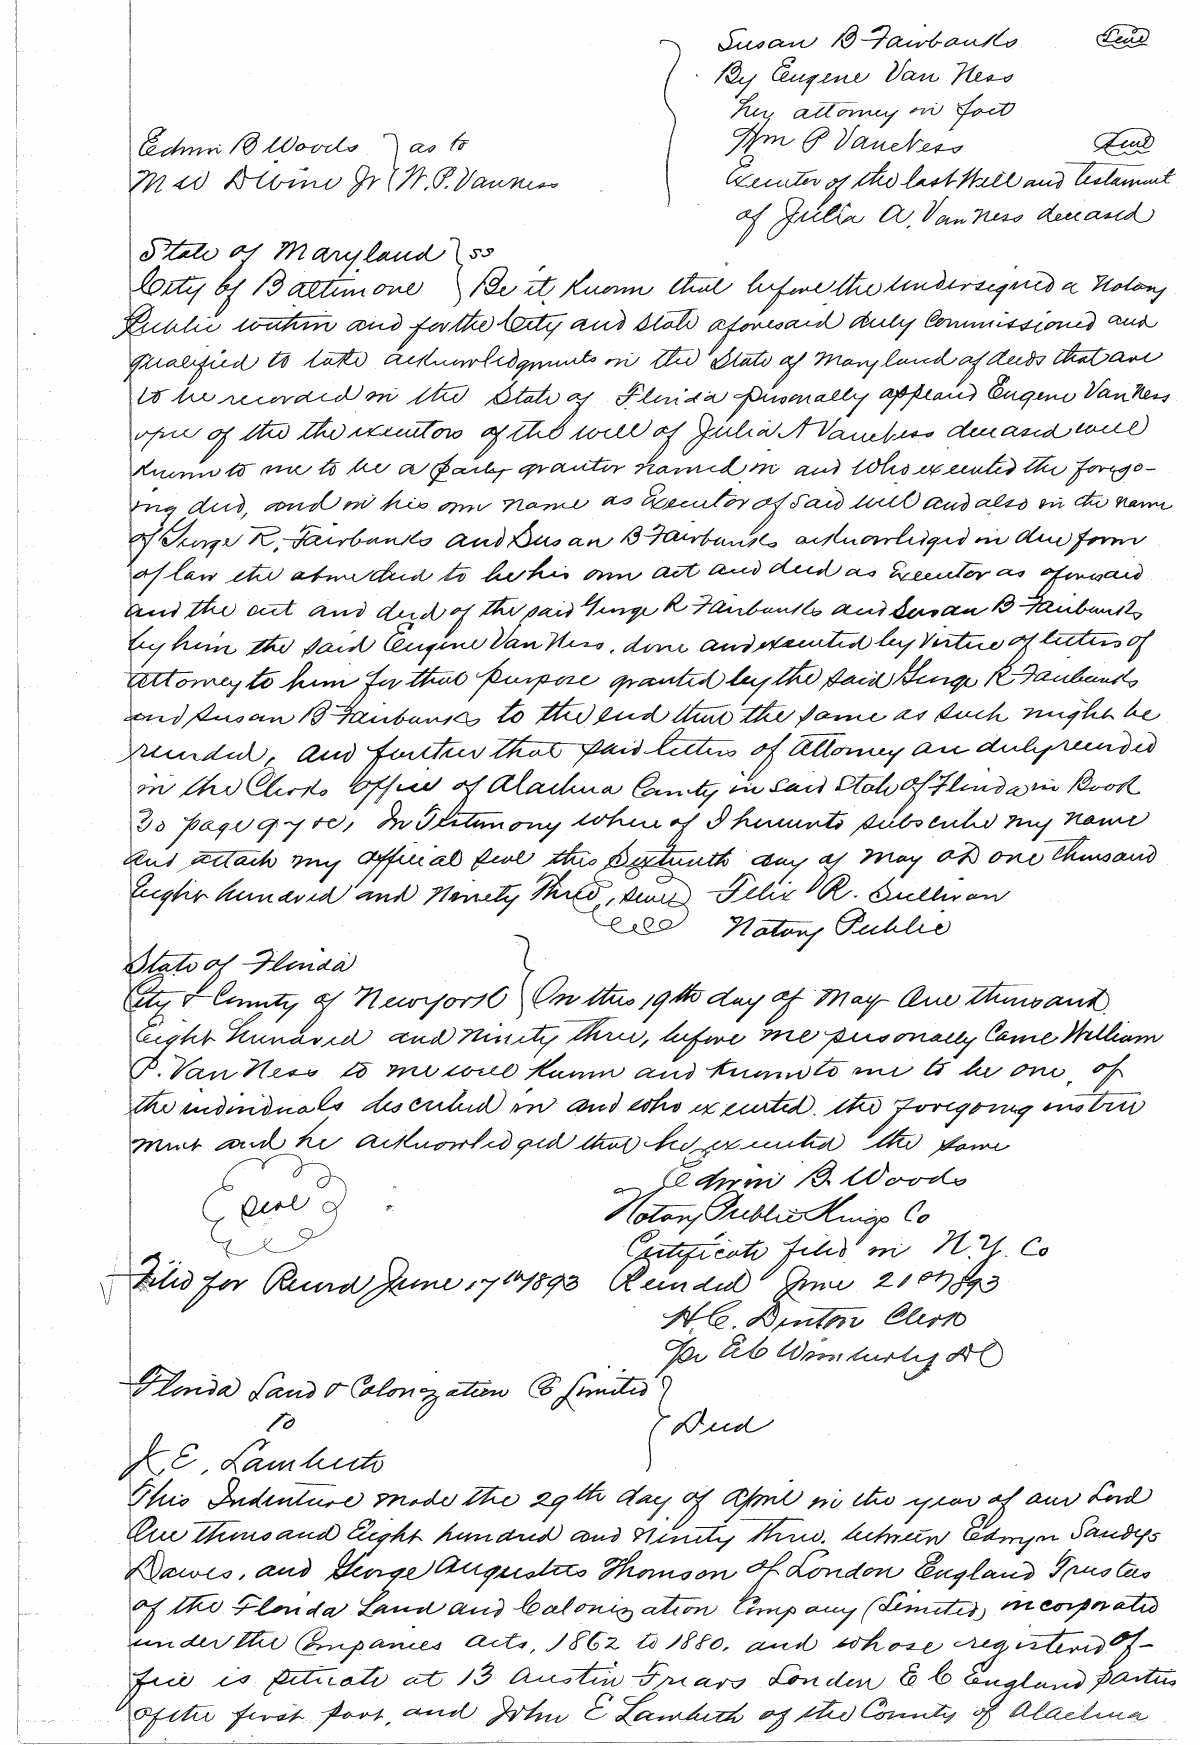 Susan B Fairbanks Seal
By Eugene Van Ness
her attorney in fact
Wm P VanNess Seal
Edwin B Woods } as to
Devine Jr } W. P. VanNess
Executor of the last Will and Testament
of Julia A. Van Ness deceased
State of Maryland } ss
City of Baltimore } Be it known that before the undersigned a Notary
Public within and for the City and State aforesaid duly Commissioned and
qualified to take acknowledgments in the State of Maryland of deeds that are
to be recorded in the State of Florida personally appeard Eugene Van Ness
one of the the executors of the will of Julia A VanNess deceased well
known to me to be a party grantor named in and who executed the forego-
ing deed, and in his own name as Executor of said will and also in the name
of George R. Fairbanks and Susan B Fairbanks acknowledged in due form
of law the above deed to be his own act and deed as Executor as aforesaid
and the act and deed of the said George R Fairbanks and Susan B Fairbanks
by him the said Eugene Van Ness, done and executed by virtue of letters of
attorney to him for that purpose granted by the said George R Fairbanks
and Susan B Fairbanks to the end that the same as such might be
recorded, and further that said letters of Attorney are duly recorded
in the Clerks office of Alachua County in said State of Florida in Book
30 page 97 &c, In Testimony where of I hereunto subscribe my name
and attach my official seal this Sixteenth day of May AD one thousand
Eight hundred and Ninety Three, seal Felix R. Sullivan
Notary Public
State of Florida
City & County of Newyork } On this 19th day of May One thousand
Eight Hundred and Ninety three, before me personally Came William
P. Van Ness to me well known and known to me to be one, of
the individuals described in and who executed. the foregoing instru
ment and he acknowledged that he executed the same
Seal Edwin B. Woods
Notary Public Kings Co
Certificate filed in N.Y. Co
Filed for Record June 17th 1893 Recorded June 21st 1893
H.C. Denton Clerk
Pr E C Wimberly DC
Florida Land & Colonization Co Limited }
to } Deed
J. E. Lambeth
This Indenture made the 29th day of April in the year of our Lord
One thousand Eight hundred and Ninety three. between Edwyn Sandys
Dawes, and George Augustus Thomson of London England Trustees
of the Florida Land and Colonization Company (Limited) incorporated
under the Companies Acts, 1862 to 1880. and whose registered of-
fice is situate at 13 Austin Friars London E C England parties
of the first part, and John E Lambeth of the County of Alachua